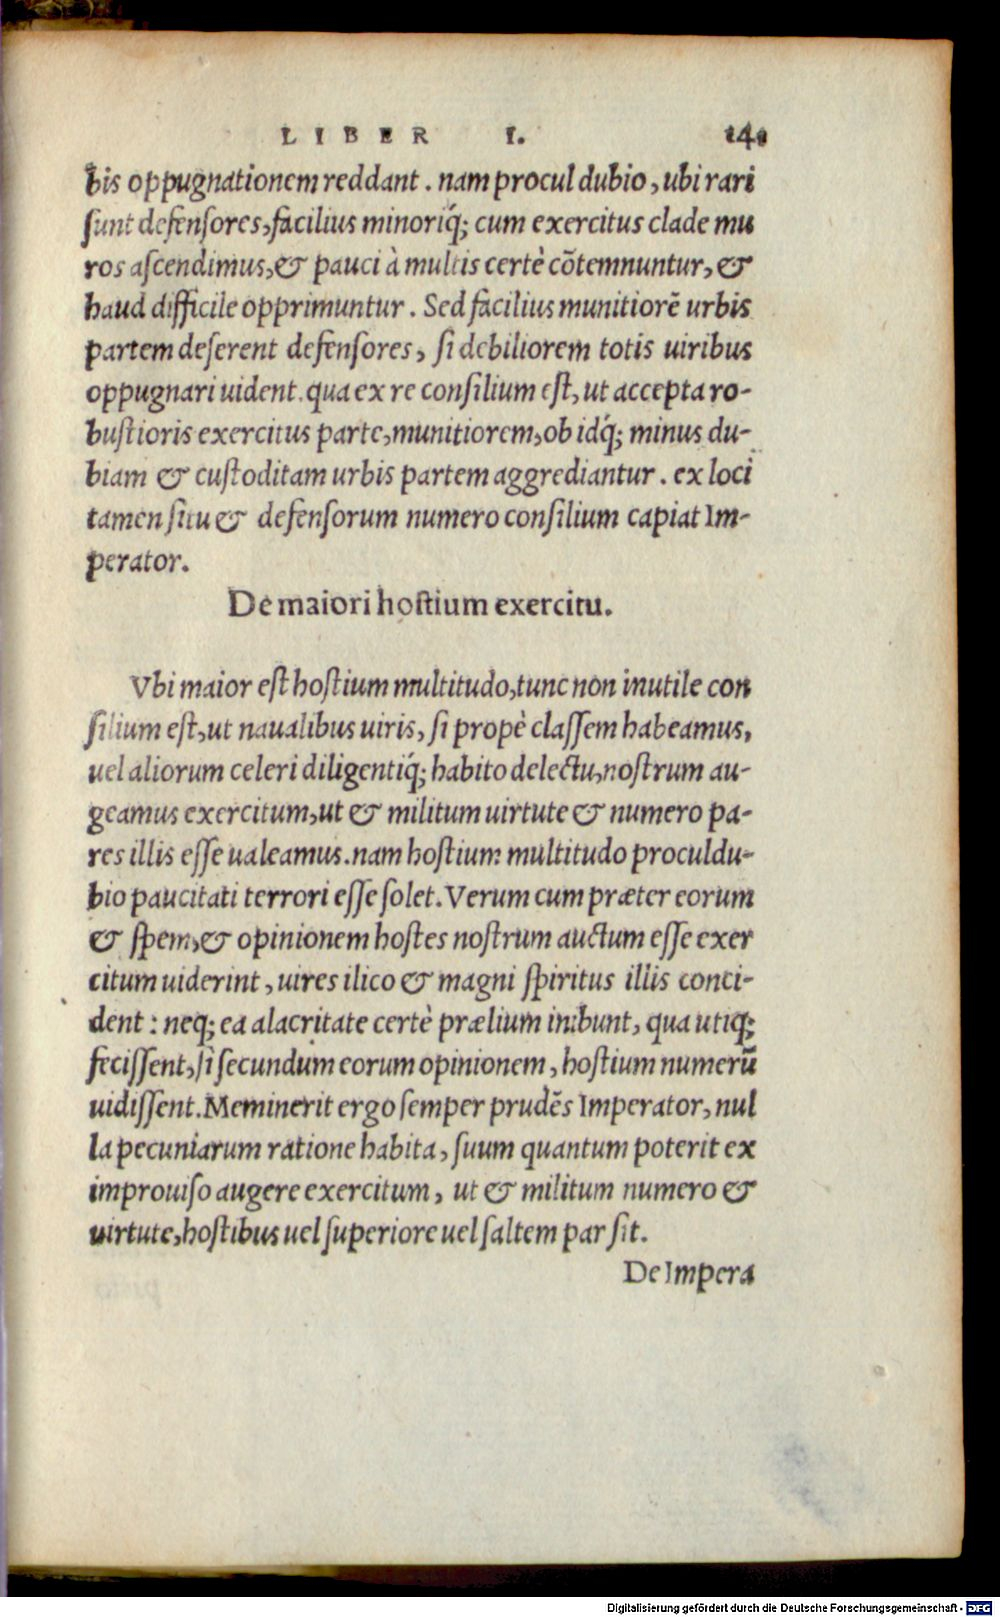 LIBER I. 141
bis oppugnationem reddant. nam procul dubio, ubi rari
sunt defensores, facilius minoriq́; cum exercitus clade mu
ros ascendimus, & pauci à multis certè cõtemnuntur, &
haud difficile opprimuntur. Sed facilius munitiorẽ urbis
partem deserent defensores, si debiliorem totis uiribus
oppugnari uident. qua ex re consilium est, ut accepta ro-
bustioris exercitus parte, munitiorem, ob idq́; minus du-
biam & custoditam urbis partem aggrediantur. ex loci
tamen situ & defensorum numero consilium capiat Im-
perator.
De maiori hostium exercitu.
Vbi maior est hostium multitudo, tunc non inutile con
silium est, ut naualibus uiris, si propè classem habeamus,
uel aliorum celeri diligentiq́; habito delectu, nostrum au-
geamus exercitum, ut & militum uirtute & numero pa-
res illis esse ualeamus. nam hostium multitudo proculdu-
bio paucitati terrori esse solet. Verum cum præter eorum
& spem, & opinionem hostes nostrum auctum esse exer
citum uiderint, uires ilico & magni spiritus illis conci-
dent: neq; ea alacritate certè prælium inibunt, qua utiq;
fecissent, si secundum eorum opinionem, hostium numerũ
uidissent. Meminerit ergo semper prudẽs Imperator, nul
la pecuniarum ratione habita, suum quantum poterit ex
improuiso augere exercitum, ut & militum numero &
uirtute, hostibus uel superiore uel saltem par sit.
De Impera
Digitalisierung gefördert durch die Deutsche Forschungsgemeinschaft - DFG